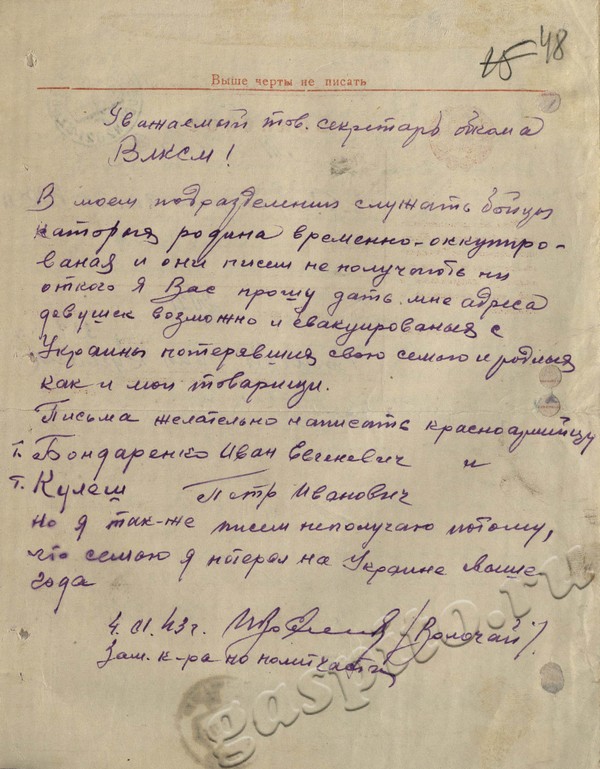 48
Выше черты не писать
Уважаемый тов. секретарь обкома
ВЛКСМ!
В моем подразделении служать бойцы
каторыя родина временно-оккупиро-
ваная и они писем не получають ни
откого я Вас прошу дать мне адреса
девушек возможно и евакуированыя с
Украины потерявшия свою семью и родныя
как и мои товарищи.
Письма желательно написать красноармийцу
т. Бондаренко Иван Евгеневич и
т. Кулеш Петр Иванович
но я так-же писем неполучаю потому,
что семью я потерял на Украине выше
года
4.II.43г. /Волочай/.
Зам. к-ра по политчасти
gaspito.ru